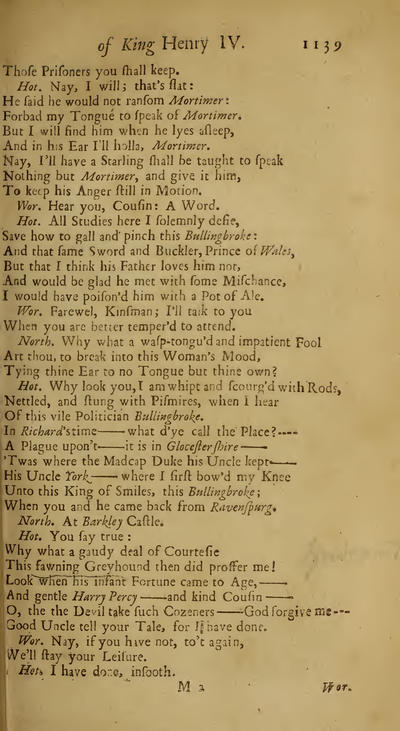 of King Henry IV. 1139
Thoſe Priſoners you ſhall keep.
Hot. Nay, I will; that's flat:
He ſaid he would not ranſom Mortimer:
Forbad my Tongue to ſpeak of Mortimer.
But I will find him when he lyes aſleep,
And in his Ear I'll holla, Mortimer.
Nay, I'll have a Starling ſhall be taught to ſpeak
Nothing but Mortimer, and give it him,
To keep his Anger ſtill in Motion.
Wor. Hear you, Couſin: A Word.
Hot. All Studies here I ſolemnly defie,
Save how to gall and pinch this Bullingbroke:
And that ſame Sword and Buckler, Prince of Wales,
But that I think his Father loves him not,
And would be glad he met with ſome Miſchance,
I would have poiſon'd him with a Pot of Ale.
Wor. Farewel, Kinſman; I'll talk to you
When you are better temper'd to attend.
North. Why what a waſp-tongu'd and impatient Fool
Art thou, to break into this Woman's Mood,
Tying thine Ear to no Tongue but thine own?
Hot. Why look you, I am whipt and ſcourg'd with Rods,
Nettled, and ſtung with Piſmires, when I hear
Of this vile Politician Bullingbroke.
In Richard's time——what d'ye call the Place?----
A Plague upon't——it is in Gloceſterſhire——
'Twas where the Madcap Duke his Uncle kept——
His Uncle York——where I firſt bow'd my Knee
Unto this King of Smiles, this Bullingbroke;
When you and he came back from Ravenſpurg.
North. At Barkley Caſtle.
Hot. You ſay true:
Why what a gaudy deal of Courteſie
This fawning Greyhound then did proffer me!
Look when his infant Fortune came to Age,——
And gentle Harry Percy——and kind Couſin——
O, the the Devil take ſuch Cozeners——God forgive me---
Good Uncle tell your Tale, for I have done.
Wor. Nay, if you have not, to't again,
We'll ſtay your Leiſure.
Hot. I have done, inſooth.
M 2 Wor.